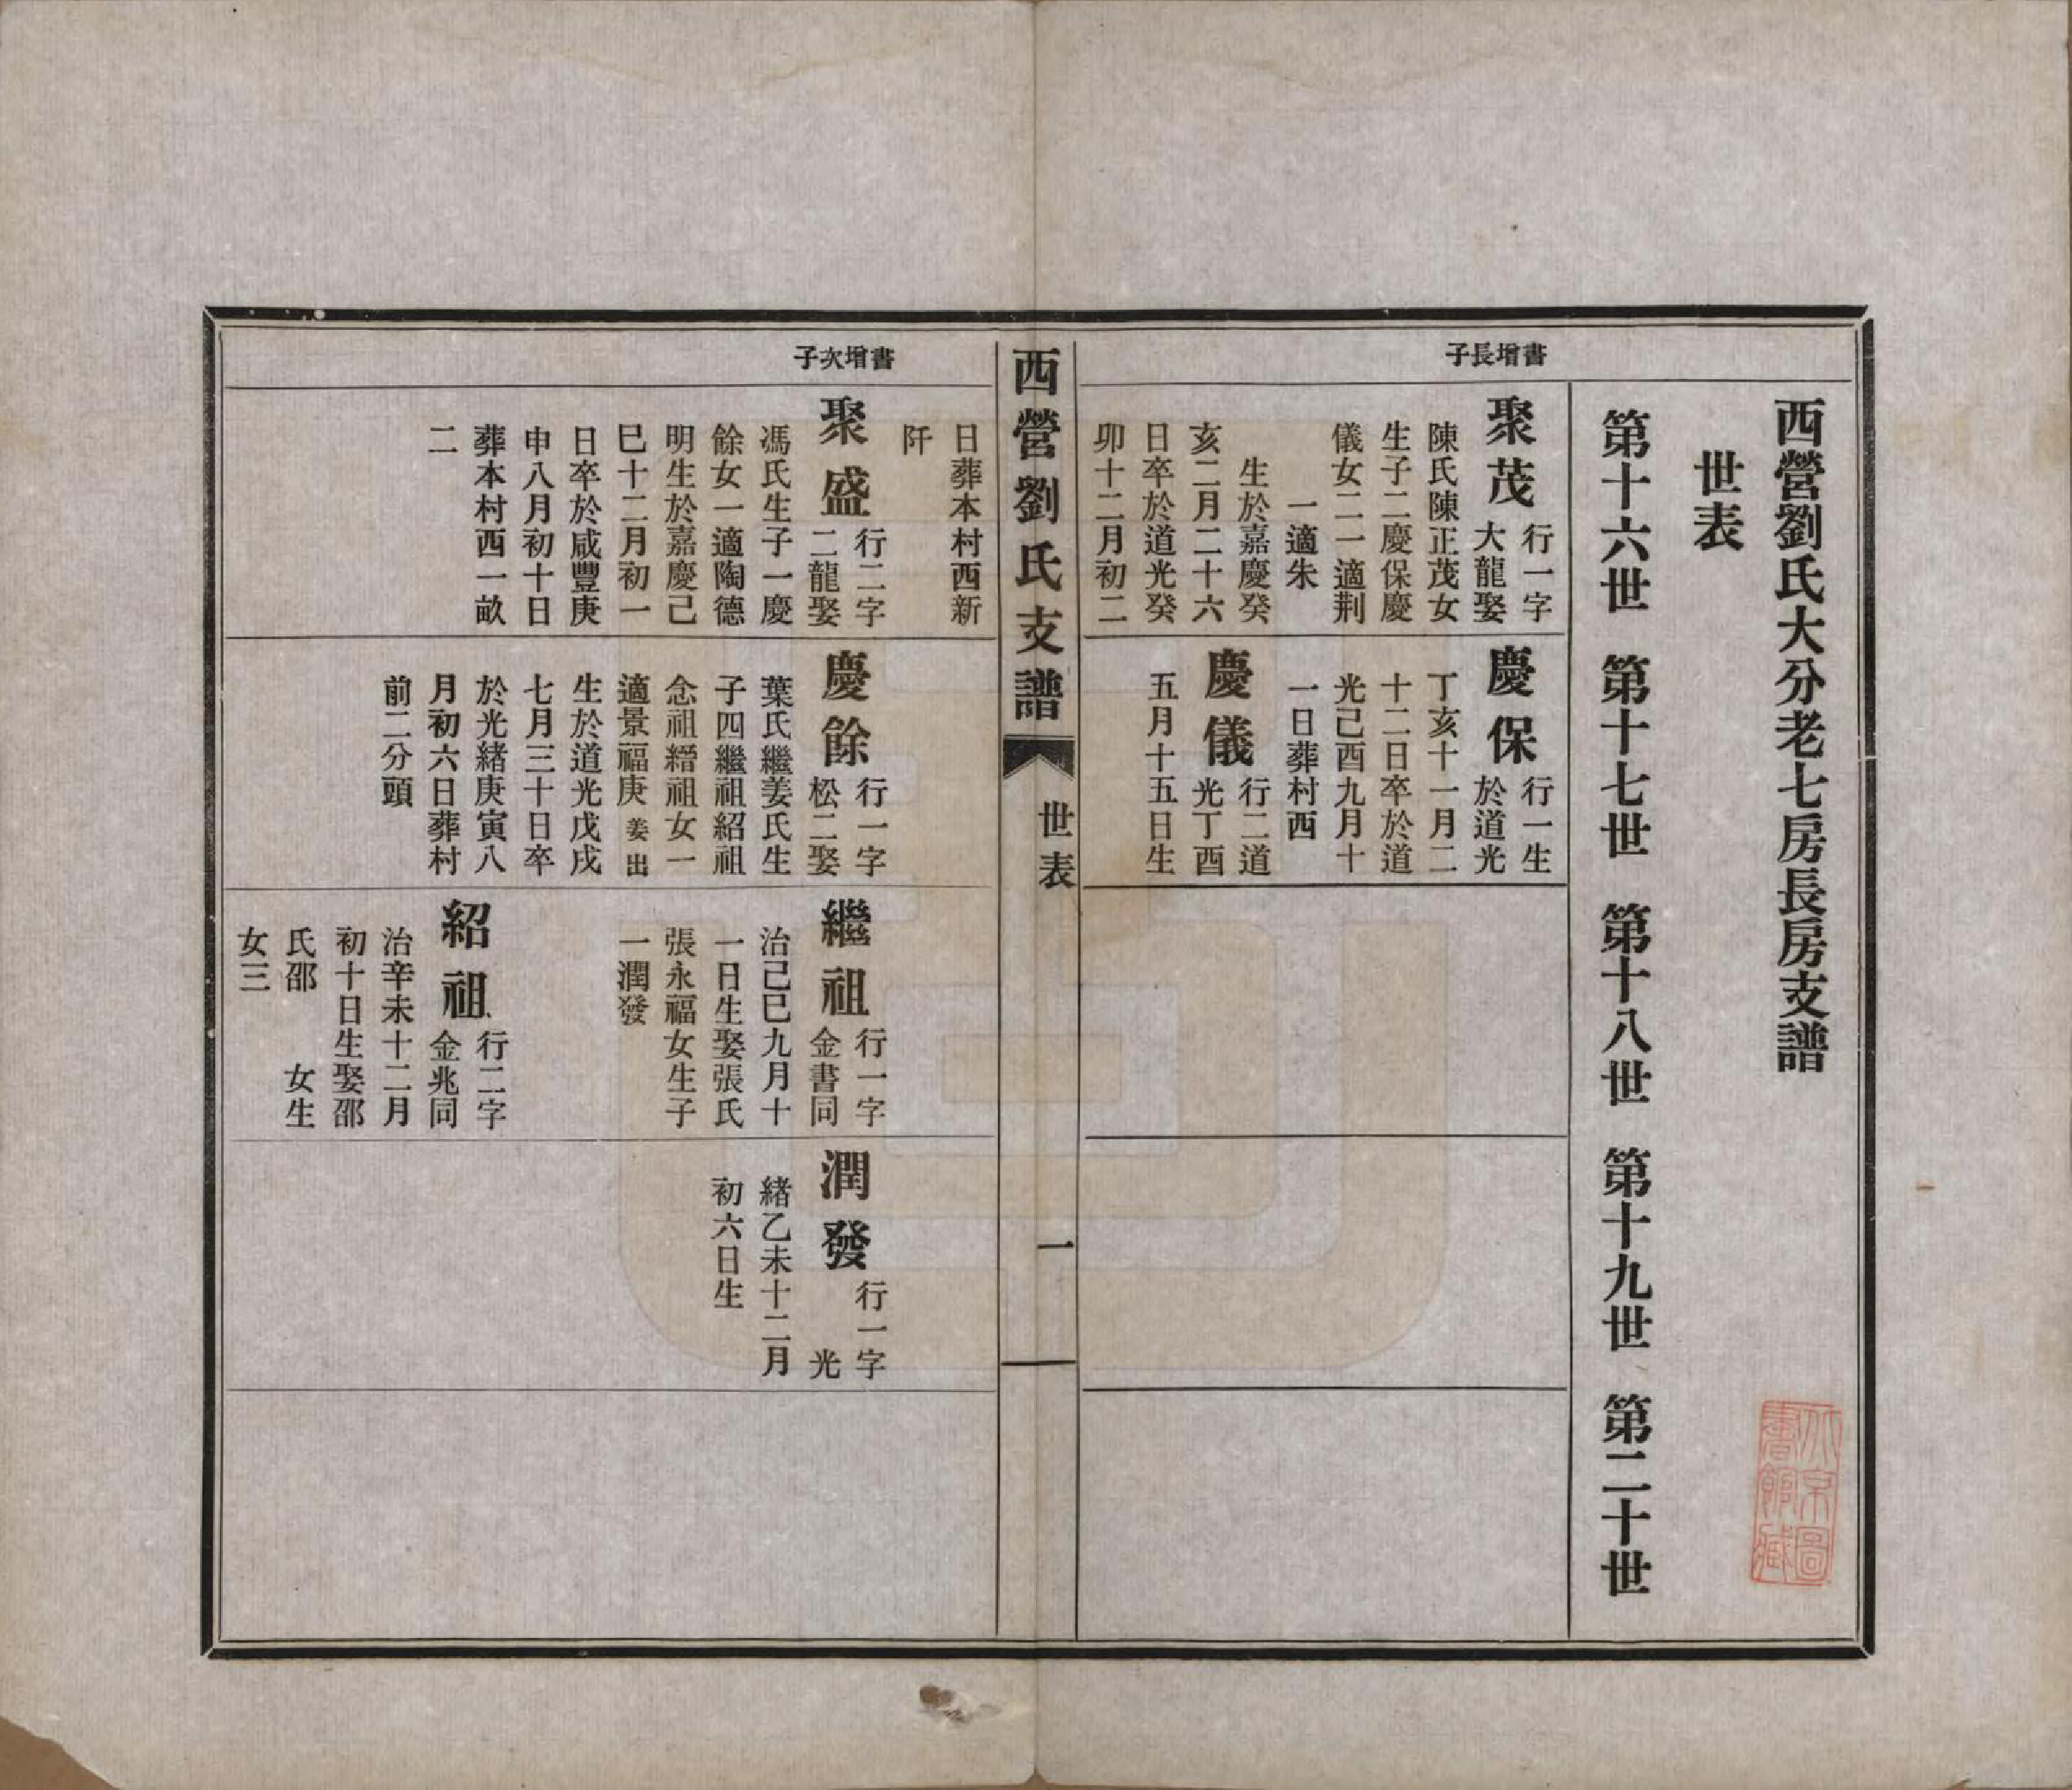 西營劉氏大分老七房長房支譜
世表
第十六世　第十七世　第十八世　第十九世　第二十世
書增長子
聚茂
行一字
大龍娶
陳氏陳正茂女
生子二慶保慶
儀女二一適荆
一適朱
生於嘉慶癸
亥二月二十六
日卒於道光癸
卯十二月初二
慶保
行一生
於道光
丁亥十一月二
十二日卒於道
光己酉九月十
一日葬村西
慶儀
行二道
光丁酉
五月十五日生
西營劉氏支譜
世表
一
日葬本村西新
阡
書增次子
聚盛
行二字
二龍娶
馮氏生子一慶
餘女一適陶德
明生於嘉慶己
巳十二月初一
日卒於咸豐庚
申八月初十日
葬本村西一畝
二
慶餘
行一字
松二娶
葉氏繼姜氏生
子四繼祖紹祖
念祖縉祖女一
適景福庚姜出
生於道光戊戌
七月三十日卒
於光緒庚寅八
月初六日葬村
前二分頭
繼祖
行一字
金書同
治己巳九月十
一日生娶張氏
張永福女生子
一潤發
紹祖
行二字
金兆同
治辛未十二月
初十日生娶邵
氏邵　　女生
女三
潤發
行一字
光
緒乙未十二月
初六日生
北京圖
書館藏